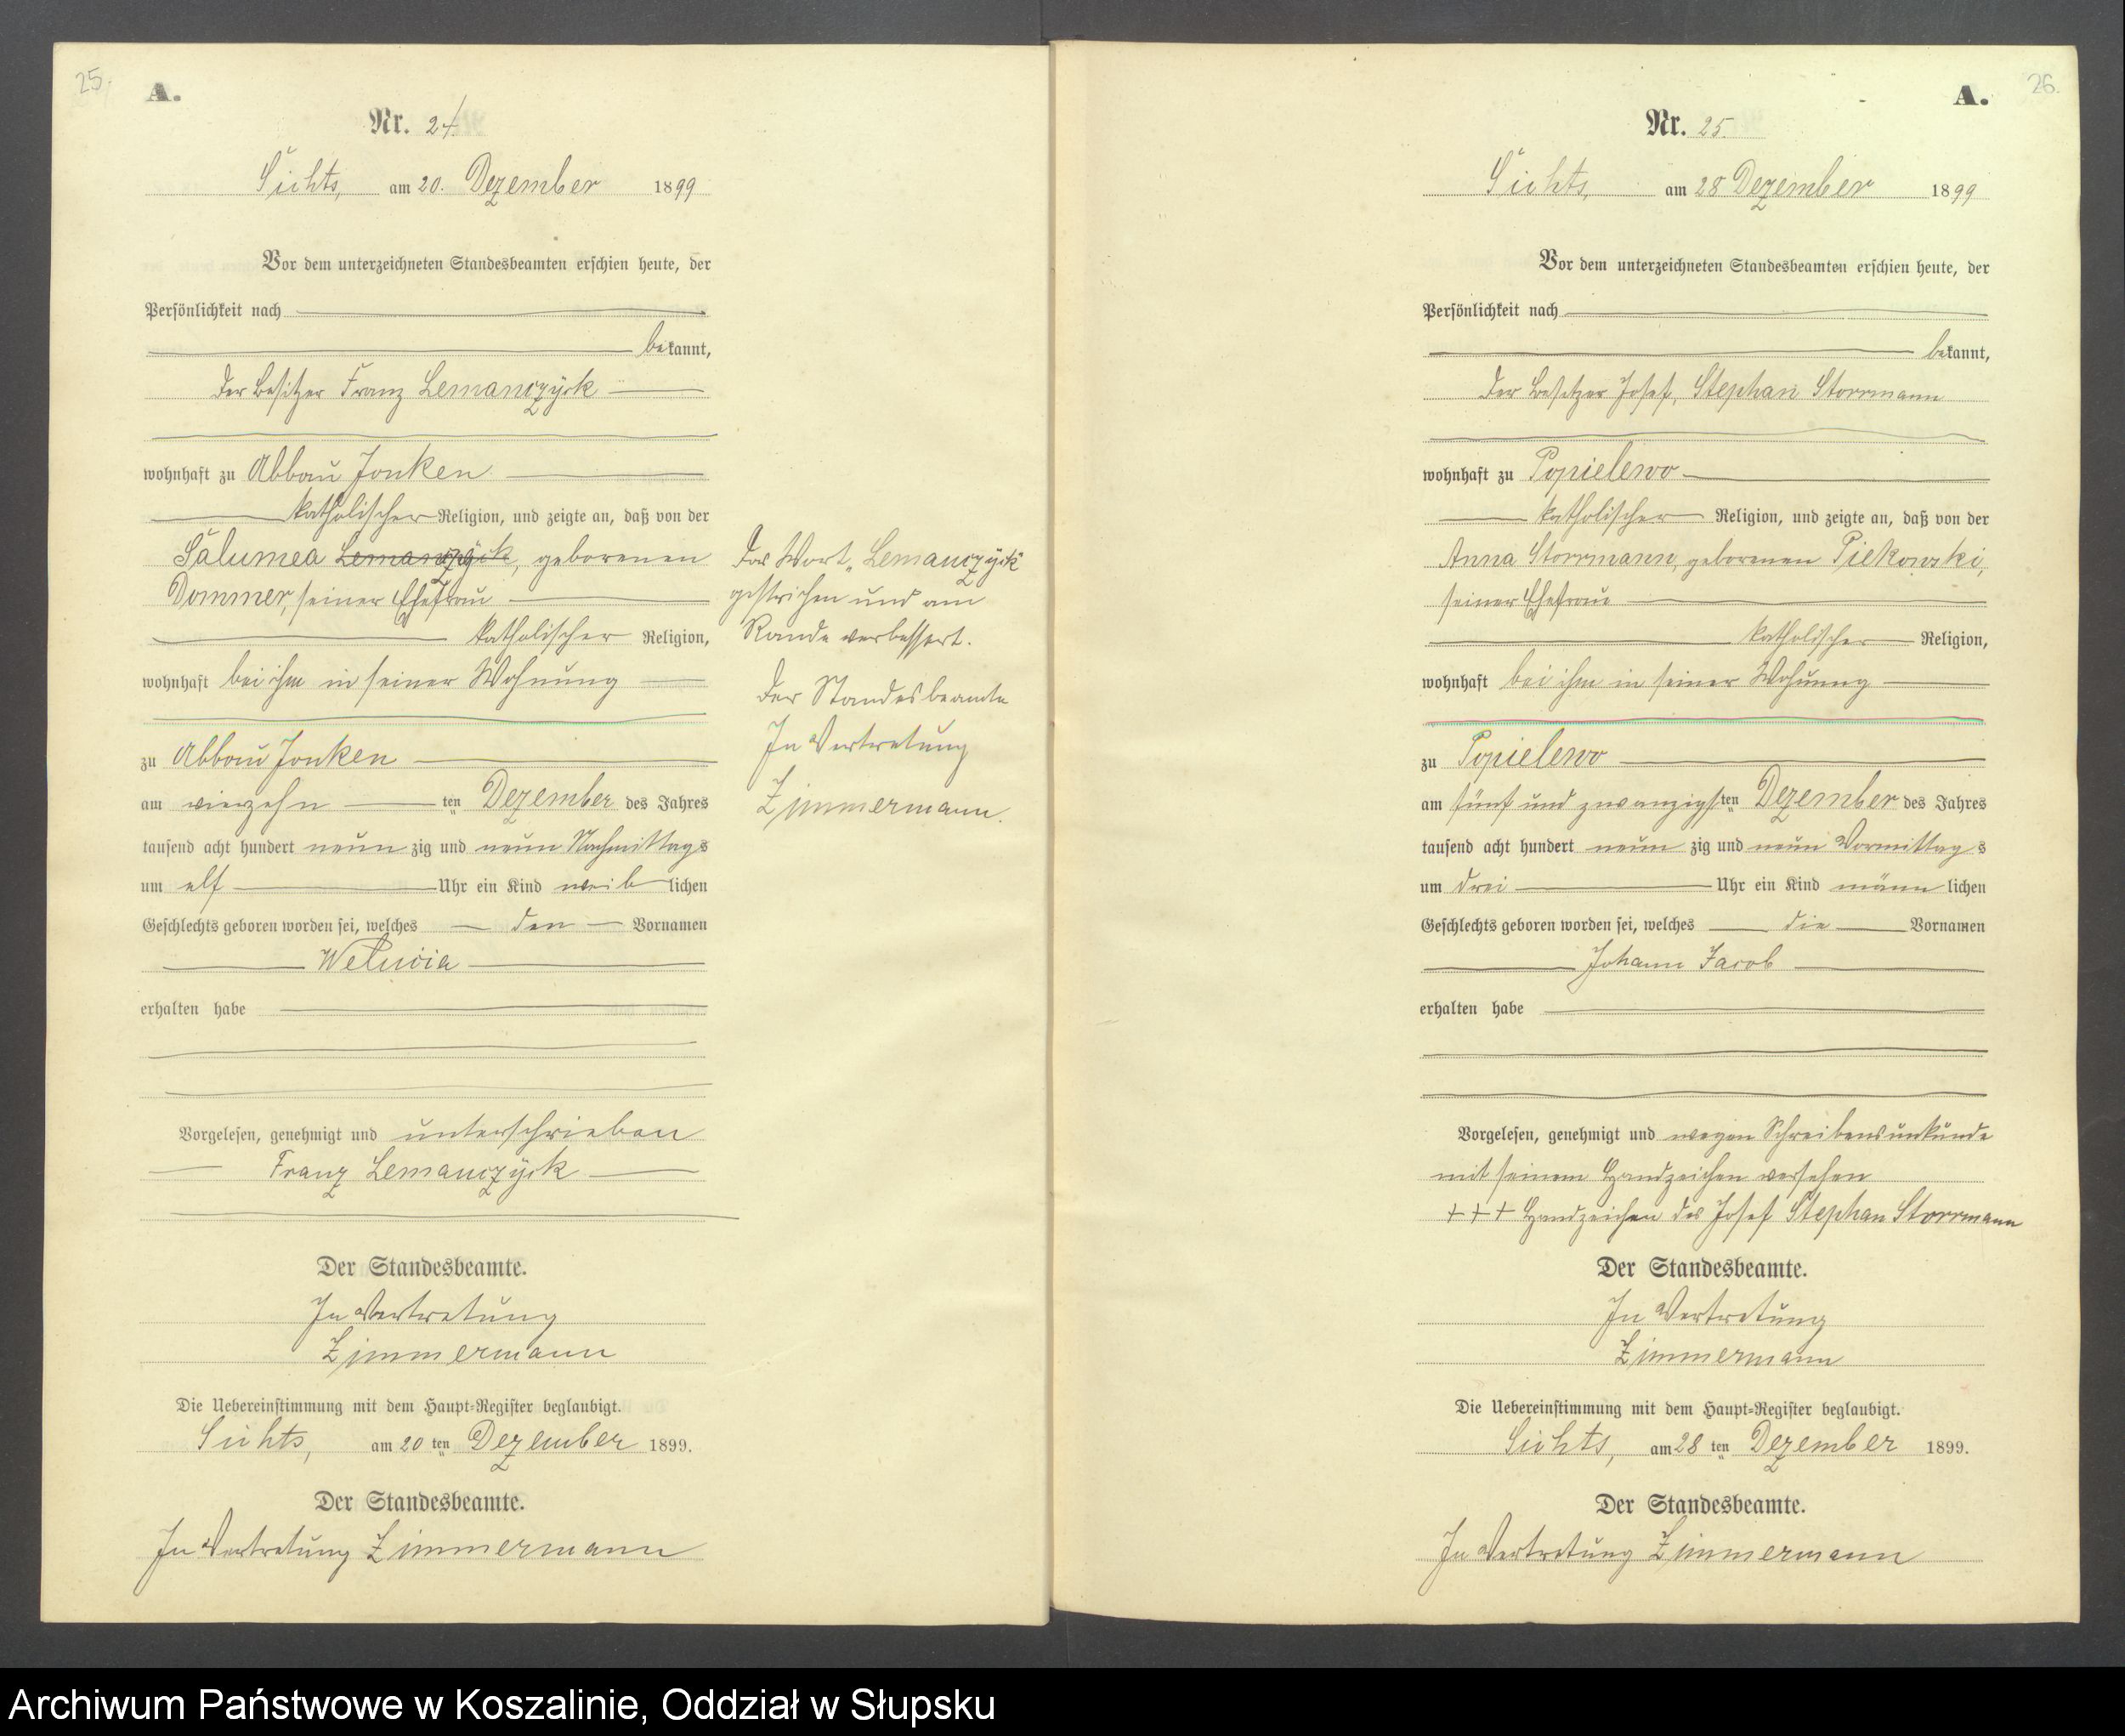 25.
A.
Nr. 24.
Sichts, am 20. Dezember 1899
Vor dem unterzeichneten Standesbeamten erschien heute, der
Persönlichkeit nach
bekannt,
der Besitzer Franz Lemanczÿck
wohnhaft zu Abbau Jonken
katholischer Religion, und zeigte an, daß von der
Salumea Lemanczÿck, geborenen
Dommer, seiner Ehefrau
katholischer Religion,
wohnhaft bei ihm in seiner Wohnung
zu Abbau Jonken
am vierzehn ten Dezember des Jahres
tausend acht hundert neun zig und neun Nachmittags
um elf Uhr ein Kind weiblichen
Geschlechts geboren worden sei, welches den Vornamen
erhalten habe
Vorgelesen, genehmigt und unterschrieben
Franz Lemanczÿck
Der Standesbeamte.
In Vertretung
Zimmermann
Die Uebereinstimmung mit dem Haupt-Register beglaubigt.
Sichts, am 20 ten Dezember 1899.
Der Standesbeamte.
In Vertretung Zimmermann
Das Wort „Lemanczÿck“
gestrichen und am
Rande verbessert.
Der Standesbeamte
In Vertretung
Zimmermann.
26.
A.
Nr. 25.
Sichts, am 28 Dezember 1899
Vor dem unterzeichneten Standesbeamten erschien heute, der
Persönlichkeit nach
bekannt,
der Besitzer Josef, Stephan Storrmann
wohnhaft zu Popielewo
katholischer Religion, und zeigte an, daß von der
Anna Storrmann, geborenen Piekowski,
seiner Ehefrau
katholischer Religion,
wohnhaft bei ihm in seiner Wohnung
zu Popielewo
am fünf und zwanzigsten Dezember des Jahres
tausend acht hundert neun zig und neun Vormittags
um drei Uhr ein Kind männlichen
Geschlechts geboren worden sei, welches die Vornamen
Johann Jacob
erhalten habe
Vorgelesen, genehmigt und wegen Schreibensunkunde
mit seinem Handzeichen versehen
+++ Handzeichen des Josef Stephan Storrmann
Der Standesbeamte.
In Vertretung
Zimmermann
Die Uebereinstimmung mit dem Haupt-Register beglaubigt.
Sichts, am 28 ten Dezember 1899.
Der Standesbeamte.
In Vertretung Zimmermann
Archiwum Państwowe w Koszalinie, Oddział w Słupsku